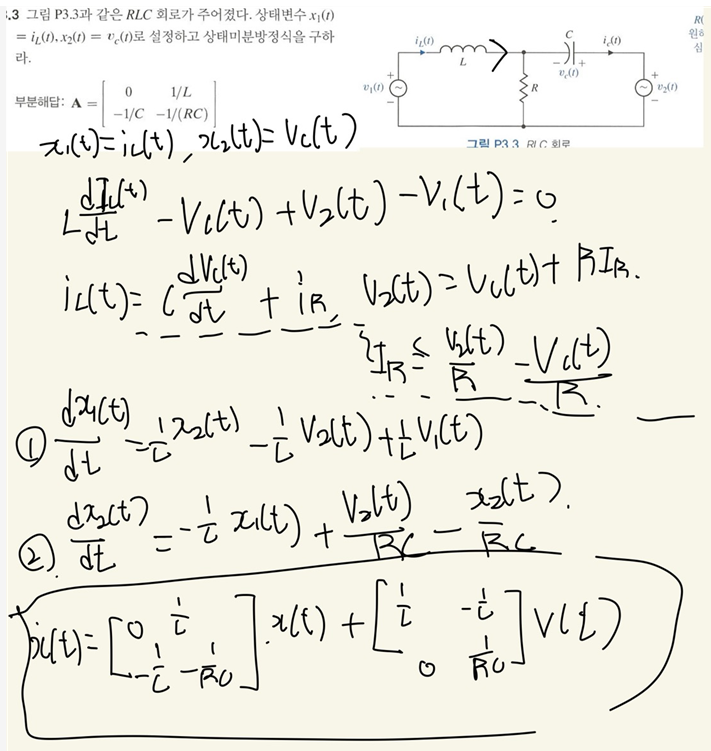 .3 그림 P3.3과 같은 RLC 회로가 주어졌다. 상태변수 x₁(t)
= i_L(t), x₂(t) = v_c(t)로 설정하고 상태미분방정식을 구하
라.
부분해답: A = [0 1/L
−1/C −1/(RC)]
i_L(t) L C i_c(t)
v₁(t) + − R − + v_c(t) + − v₂(t)
그림 P3.3 RLC 회로
원하
심
x₁(t)=i_L(t), x₂(t)=V_c(t)
L dI_L(t)/dt − V_c(t) + V₂(t) − V₁(t) = 0
i_L(t) = C dV_c(t)/dt + i_R, V₂(t) = V_c(t) + R I_R.
I_R = V₂(t)/R − V_c(t)/R.
① dx₁(t)/dt = 1/L x₂(t) − 1/L V₂(t) + 1/L V₁(t)
② dx₂(t)/dt = −1/C x₁(t) + V₂(t)/RC − x₂(t)/RC.
ẋ(t) = [0 1/L
−1/C −1/RC] x(t) + [1/L −1/L
0 1/RC] V(t)